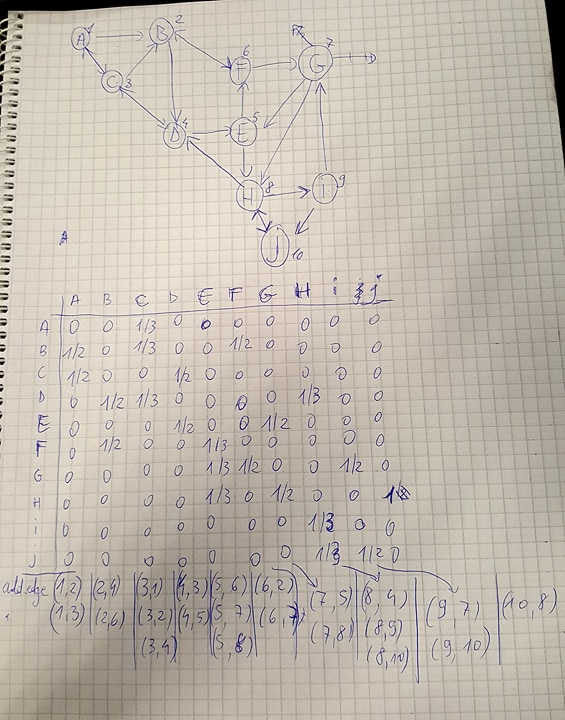 A 1
B 2
C 3
D 4
E 5
F 6
G 7
H 8
i 9
J 10
A
A B C D E F G H i j
A 0 0 1/3 0 0 0 0 0 0 0
B 1/2 0 1/3 0 0 1/2 0 0 0 0
C 1/2 0 0 1/2 0 0 0 0 0 0
D 0 1/2 1/3 0 0 0 0 1/3 0 0
E 0 0 0 1/2 0 0 1/2 0 0 0
F 0 1/2 0 0 1/3 0 0 0 0 0
G 0 0 0 0 1/3 1/2 0 0 1/2 0
H 0 0 0 0 1/3 0 1/2 0 0 1
i 0 0 0 0 0 0 0 1/3 0 0
J 0 0 0 0 0 0 0 1/3 1/2 0
add.edge (1,2) (2,4) (3,1) (4,3) (5,6) (6,2) (7,5) (8,4) (9,7) (10,8)
(1,3) (2,6) (3,2) (4,5) (5,7) (6,7) (7,8) (8,9) (9,10)
(3,4) (5,8) (8,10)